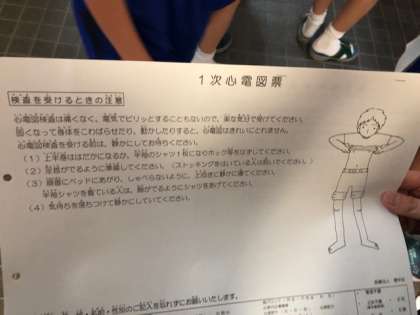 1次心電図票
検査を受けるときの注意
心電図検査は痛くなく、電気でピリッとすることもないので、楽な気分で受けてください。
固くなって身体をこわばらせたり、動かしたりすると、心電図はきれいにとれません。
心電図検査を受ける前は、静かにしてお待ちください。
(1)上半身ははだかになるか、半袖のシャツ1枚になりホック等をはずしてください。
(2)足首がでるように準備してください。(ストッキングをはいている人は脱いでください。)
(3)順番にベッドにあがり、しゃべらないように、上向きに静かに寝てください。
半袖シャツを着ている人は、胸がでるようにシャツをあげてください。
(4)気持ちを落ちつけて静かにしていてください。
・性別のご記入を忘れずにお願いいたします。